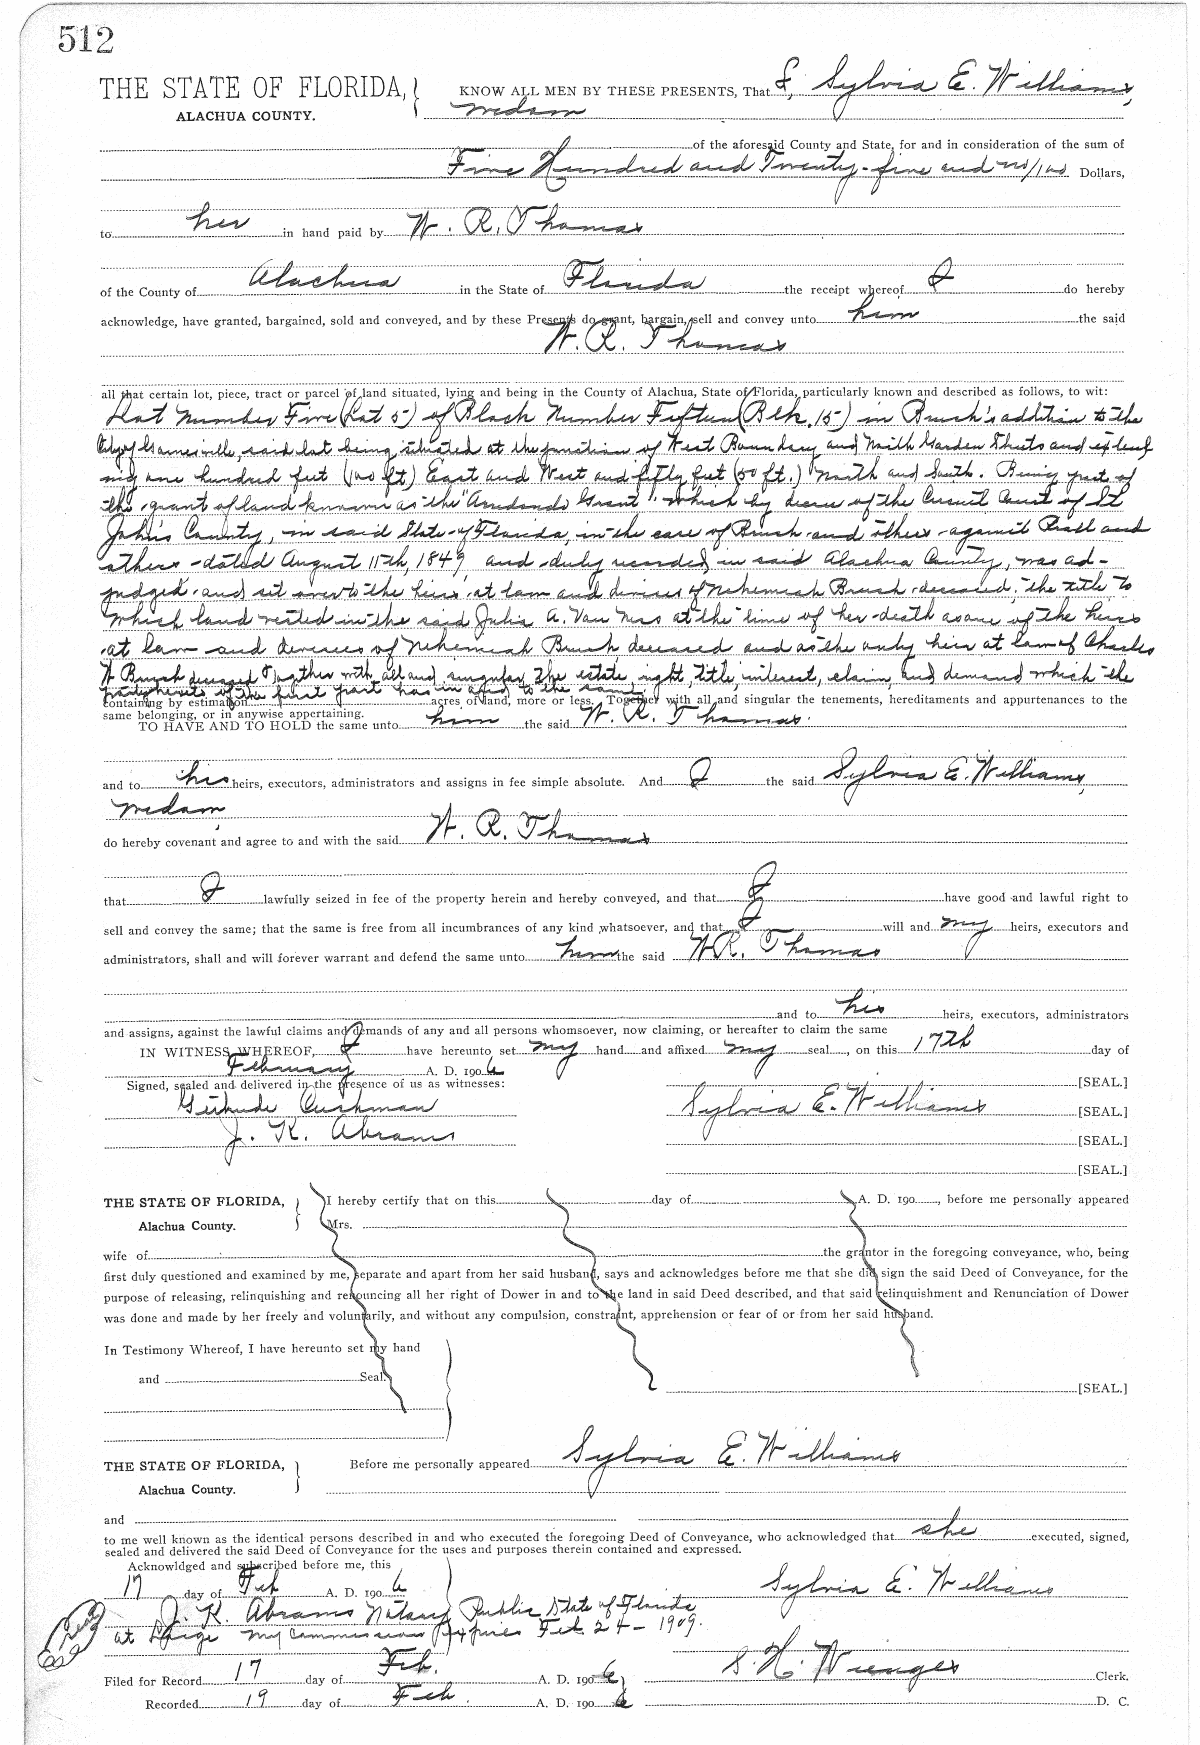 512
THE STATE OF FLORIDA, KNOW ALL MEN BY THESE PRESENTS, That I, Sylvia E. Williams,
ALACHUA COUNTY. widow
of the aforesaid County and State, for and in consideration of the sum of
Five Hundred and Twenty-five and no/100 Dollars,
to her in hand paid by W. R. Thomas
of the County of Alachua in the State of Florida the receipt whereof I do hereby
acknowledge, have granted, bargained, sold and conveyed, and by these Presents do grant, bargain, sell and convey unto him the said
W. R. Thomas
all that certain lot, piece, tract or parcel of land situated, lying and being in the County of Alachua, State of Florida, particularly known and described as follows, to wit:
Lot Number Five (Lot 5) of Block Number Fifteen (Blk. 15) in Brush's addition to the
City of Gainesville, said lot being situated at the junction of West Boundary and North Garden Streets and extend
ing one hundred feet (100 ft) East and West and fifty feet (50 ft.) North and South. Being part of
the grant of land known as the "Arredondo Grant" which by decree of the Circuit Court of St
John's County, in said State of Florida, in the case of Brush and others against and
others dated August 11th, 1849, and duly recorded in said Alachua County, was ad-
judged and set over to the heirs at law and devisees of Nehemiah Brush deceased, the title to
which land vested in the said Julia A. Van Ness at the time of her death as one of the heirs
at law and devisees of Nehemiah Brush deceased and as the only heir at law of Charles
W Brush deceased Together with all and singular the estate, right, title, interest, claim, and demand which the
party hereto of the first part has in and to the same
containing by estimation acres of land, more or less. Together with all and singular the tenements, hereditaments and appurtenances to the
same belonging, or in anywise appertaining.
TO HAVE AND TO HOLD the same unto him the said W. R. Thomas.
and to his heirs, executors, administrators and assigns in fee simple absolute. And I the said Sylvia E. Williams,
widow,
do hereby covenant and agree to and with the said W. R. Thomas
that I lawfully seized in fee of the property herein and hereby conveyed, and that I have good and lawful right to
sell and convey the same; that the same is free from all incumbrances of any kind whatsoever, and that I will and my heirs, executors and
administrators, shall and will forever warrant and defend the same unto him the said W.R. Thomas
and to his heirs, executors, administrators
and assigns, against the lawful claims and demands of any and all persons whomsoever, now claiming, or hereafter to claim the same
IN WITNESS WHEREOF, I have hereunto set my hand and affixed my seal, on this 17th day of
February A. D. 1906
Signed, sealed and delivered in the presence of us as witnesses: [SEAL.]
Gertrude Cushman Sylvia E. Williams [SEAL.]
J. K. Abrams [SEAL.]
[SEAL.]
THE STATE OF FLORIDA, I hereby certify that on this day of A. D. 190, before me personally appeared
Alachua County. Mrs.
wife of the grantor in the foregoing conveyance, who, being
first duly questioned and examined by me, separate and apart from her said husband, says and acknowledges before me that she did sign the said Deed of Conveyance, for the
purpose of releasing, relinquishing and renouncing all her right of Dower in and to the land in said Deed described, and that said relinquishment and Renunciation of Dower
was done and made by her freely and voluntarily, and without any compulsion, constraint, apprehension or fear of or from her said husband.
In Testimony Whereof, I have hereunto set my hand
and Seal. [SEAL.]
THE STATE OF FLORIDA, Before me personally appeared Sylvia E. Williams
Alachua County.
and
to me well known as the identical persons described in and who executed the foregoing Deed of Conveyance, who acknowledged that she executed, signed,
sealed and delivered the said Deed of Conveyance for the uses and purposes therein contained and expressed.
Acknowldged and subscribed before me, this
17 day of Feb A. D. 1906 Sylvia E. Williams
J. K. Abrams Notary Public State of Florida
at Large My Commission Expires Feb. 24 - 1909.
Filed for Record 17 day of Feb. A. D. 1906 S. H. Wienges Clerk.
Recorded 19 day of Feb. A. D. 1906 D. C.